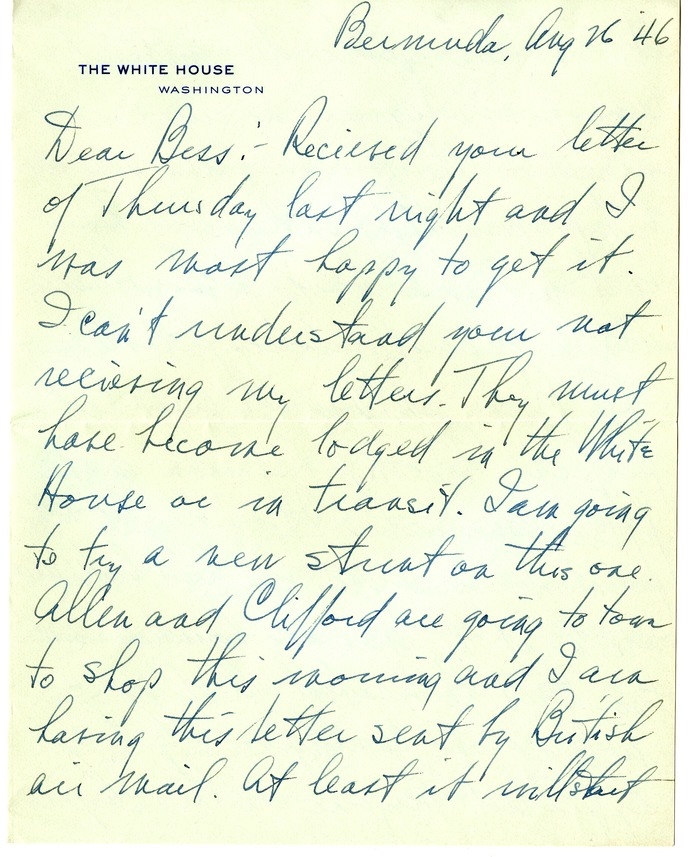 Bermuda, Aug 26 '46
THE WHITE HOUSE
WASHINGTON
Dear Bess:- Recieved your letter
of Thursday last night and I
was most happy to get it.
I can't understand your not
recieving my letters. They must
have become lodged in the White
House or in transit. I am going
to try a new stunt on this one.
Allen and Clifford are going to town
to shop this morning and I am
having this letter sent by British
air mail. At least it will start